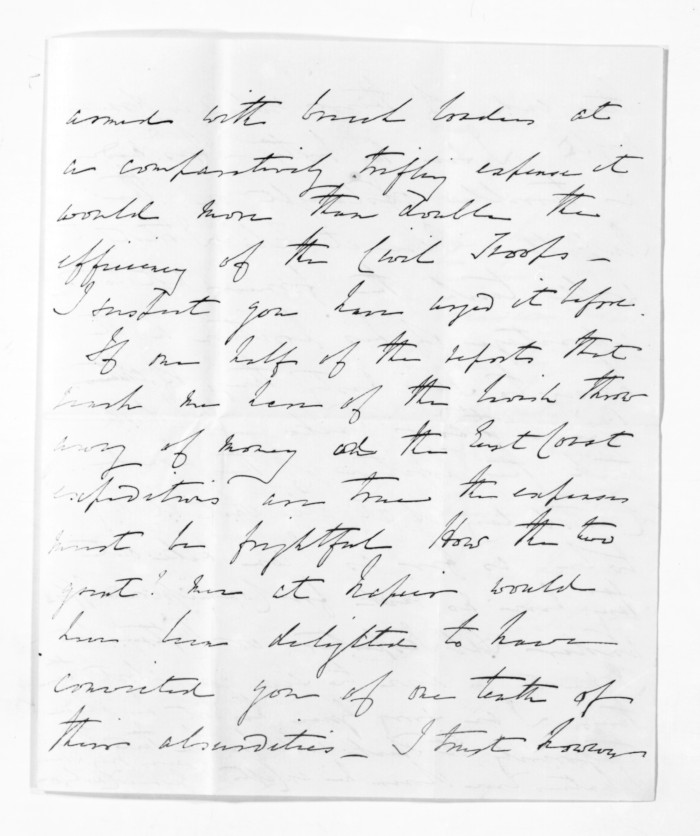 armed with breech loaders at
a comparatively trifling expense it
would more than double the
efficiency of the Civil Troops –
I suspect you have urged it before.
If one half of the reports that
reach me here of the lavish throw
away of money on the East Coast
expeditions are true the expenses
must be frightful How the two
great? men at Napier would
have been delighted to have
convicted you of one tenth of
their absurdities – I trust however